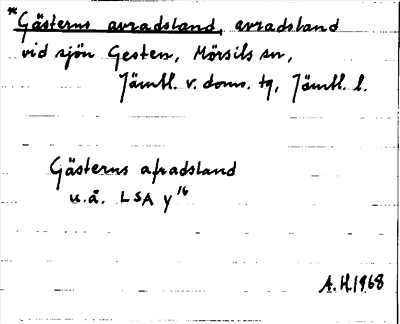 *Gästerns avradsland, avradsland
vid sjön Gesten, Mörsils sn,
Jämtl. v. doms. tg, Jämtl. l.
Gästerns afradsland
u.å. LSA y16
A.H.1968